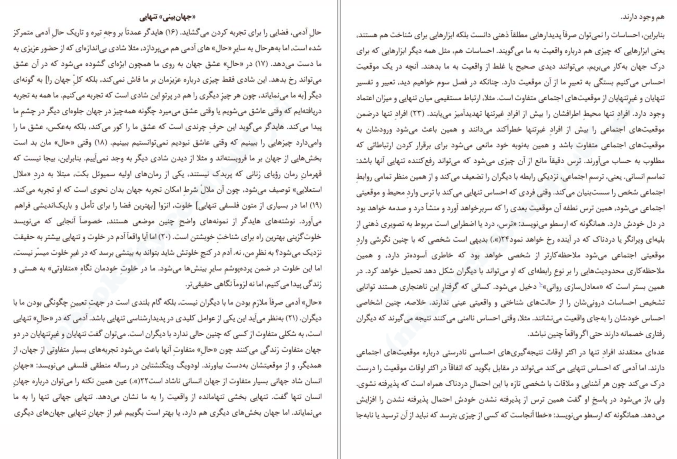 هم وجود دارند.
بنابراین، احساسات را نمی‌توان صرفاً پدیدارهایی مطلقاً ذهنی دانست بلکه ابزارهایی برای شناخت هم هستند،
یعنی ابزارهایی که چیزی هم درباره واقعیت به ما می‌گویند. احساسات هم، مثل همه دیگر ابزارهایی که برای
درک جهان به‌کار می‌بریم، می‌توانند دیدی صحیح یا غلط از واقعیت به ما بدهند. آنچه در یک موقعیت
احساس می‌کنیم بستگی به تعبیر ما از آن موقعیت دارد. چنانکه در فصل سوم خواهیم دید، تعبیر و تفسیر
تنهایان و غیرتنهایان از موقعیت‌های اجتماعی متفاوت است. مثلا، ارتباط مستقیمی میان تنهایی و میزان اعتماد
وجود دارد. افراد تنها محیط اطرافشان را بیش از افراد غیرتنها تهدیدآمیز می‌یابند. (۲۳) افراد تنها درضمن
موقعیت‌های اجتماعی را بیش از افراد غیرتنها خطرآکند می‌دانند و همین باعث می‌شود ورودشان به
موقعیت‌های اجتماعی متفاوت باشد و همین به‌نوبه خود مانعی می‌شود برای برقرار کردن ارتباطاتی که
مطلوب به حساب می‌آورند. ترس دقیقا مانع از آن چیزی می‌شود که می‌تواند رفع‌کننده تنهایی آنها باشد:
تماسم انسانی. یعنی، ترسم اجتماعی، نزدیکی رابطه با دیگران را تضعیف می‌کند و از همین منظر تمامی روابط
اجتماعی شخص را سست‌بنیان می‌کند. وقتی فردی که احساس تنهایی می‌کند با ترس وارد محیط و موقعیتی
اجتماعی می‌شود، همین ترس نطفه آن موقعیت بعدی را که سربرخواهد آورد و منشأ درد و صدمه خواهد بود
در دل خودش دارد. همانگونه که ارسطو می‌نویسد: «ترس، درد یا اضطرابی است مربوط به تصویری ذهنی از
بلیه‌ای ویرانگر یا دردناک که در آینده رخ خواهد نمود»۲۴(ه) بدیهی است شخصی که با چنین نگرشی وارد
موقعیتی اجتماعی می‌شود ملاحظه‌کارتر از شخصی خواهد بود که خاطری آسوده‌تر دارد، و همین
ملاحظه‌کاری محدودیت‌هایی را بر نوع رابطه‌ای که او می‌تواند با دیگران شکل دهد تحمیل خواهد کرد. در
همین بستر است که «معادل‌سازی روانی» دخیل می‌شود. کسانی که گرفتار این ناهنجاری هستند توانایی
تشخیص احساسات درونی‌شان را از حالت‌های شناختی و واقعیتی عینی ندارند. خلاصه، چنین اشخاصی
احساس خودشان را به‌جای واقعیت می‌نشانند. مثلا، وقتی احساس ناامنی می‌کنند نتیجه می‌گیرند که دیگران
رفتاری خصمانه دارند حتی اگر واقعاً چنین نباشد.
عده‌ای معتقدند افراد تنها در اکثر اوقات نتیجه‌گیری‌های احساسی نادرستی درباره موقعیت‌های اجتماعی
دارند. اما آدمی که احساس تنهایی می‌کند می‌تواند در مقابل بگوید که اتفاقاً در اکثر اوقات موقعیت را درست
درک می‌کند چون هر آشنایی و ملاقات با شخصی تازه با این احتمال دردناک همراه است که پذیرفته نشوی.
ولی باز می‌شود در پاسخ او گفت همین ترس از پذیرفته نشدن خودش احتمال پذیرفته نشدن را افزایش
می‌دهد. همانگونه که ارسطو می‌نویسد: «خطا آنجاست که کسی از چیزی بترسد که نباید از آن ترسید یا نابه‌جا
«جهان‌بینی» تنهایی
حال آدمی، فضایی را برای تجربه کردن می‌گشاید. (۱۶) هایدگر عمدتاً بر وجه تیره و تاریک حال آدمی متمرکز
شده است، اما به‌هرحال به سایر «حال» های آدمی هم می‌پردازد، مثلا شادی بی‌اندازه‌ای که از حضور عزیزی به
ما دست می‌دهد. (۱۷) در «حال» عشق جهان به روی ما همچون ابژه‌ای گشوده می‌شود که در آن عشق
می‌تواند رخ بدهد. این شادی فقط چیزی درباره عزیزمان بر ما فاش نمی‌کند، بلکه کل جهان را] به گونه‌ای
دیگر [به ما می‌نمایاند، چون هر چیز دیگری را هم در پرتو این شادی است که تجربه می‌کنیم. ما همه به تجربه
دریافته‌ایم که وقتی عاشق می‌شویم یا وقتی عشق می‌میرد چگونه همه‌چیز در جهان جلوه‌ای دیگر در چشم ما
پیدا می‌کند. هایدگر می‌گوید این حرف چرندی است که عشق ما را کور می‌کند، بلکه به‌عکس، عشق ما را
وامی‌دارد چیزهایی را ببینیم که وقتی عاشق نبودیم نمی‌توانستیم ببینیم. (۱۸) وقتی «حال» مان بد است
بخش‌هایی از جهان بر ما فروبسته‌اند و مثلا از دیدن شادی دیگر به وجد نمی‌آییم. بنابراین، بیجا نیست که
قهرمان رمان رؤیای زنانی که پربدک نیستند، یکی از رمان‌های اولیه سمیوئل بکت، مبتلا به درد «ملال
استعلایی» توصیف می‌شود، چون آن ملال شرط امکان تجربه جهان بدان نحوی است که او تجربه می‌کند.
(۱۹) اما در بسیاری از متون فلسفی تنهایی] خلوت، انزوا [بهترین فضا را برای تأمل و باریک‌اندیشی فراهم
می‌آورد. نوشته‌های هایدگر از نمونه‌های واضح چنین موضعی هستند، خصوصاً آنجایی که می‌نویسد
خلوت‌گزینی بهترین راه برای شناخت خویشتن است. (۲۰) اما آیا واقعاً آدم در خلوت و تنهایی بیشتر به حقیقت
نزدیک می‌شود؟ به نظرِ من، نه. آدم در کنج خلوتش شاید بتواند به بینشی برسد که در غیر خلوت میسر نیست.
اما این خلوت در ضمن پرده‌پوش سایر بینش‌ها می‌شود. ما در خلوت خودمان نگاه «متفاوتی» به هستی و
زندگی پیدا می‌کنیم، اما نه لزوماً نگاهی حقیقی‌تر.
«حال» آدمی صرفاً ملازم بودن ما با دیگران نیست، بلکه گام بلندی است در جهت تعیین چگونگی بودن ما با
دیگران. (۲۱) به‌نظر می‌آید این یکی از عوامل کلیدی در پدیدارشناسی تنهایی باشد. آدمی که در «حال» تنهایی
است، به شکلی متفاوت از کسی که چنین حالی ندارد با دیگران است. می‌توان گفت تنهایان و غیرتنهایان در دو
جهان متفاوت زندگی می‌کنند چون «حال» متفاوت آنها باعث می‌شود تجربه‌های بسیار متفاوتی از جهان، از
همدیگر، و از موقعیتشان به‌دست بیاورند. لودویگ ویتگنشتاین در رساله منطقی فلسفی می‌نویسد: «جهان
انسان شاد جهانی بسیار متفاوت از جهان انسانی ناشاد است»۲۲(ه). عین همین نکته را می‌توان درباره جهان
انسان تنها گفت. تنهایی بخشی تنهامانده از واقعیت را به ما نشان می‌دهد. تنهایی جهانی تنها را به ما
می‌نمایاند. اما جهان بخش‌های دیگری هم دارد، یا بهتر است بگوییم غیر از جهان تنهایی جهان‌های دیگری